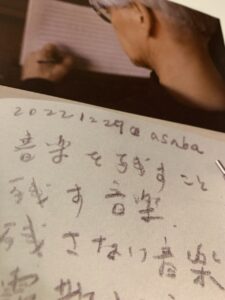 20221229 asaba
音楽を残すこと
残す音楽
残さない音楽